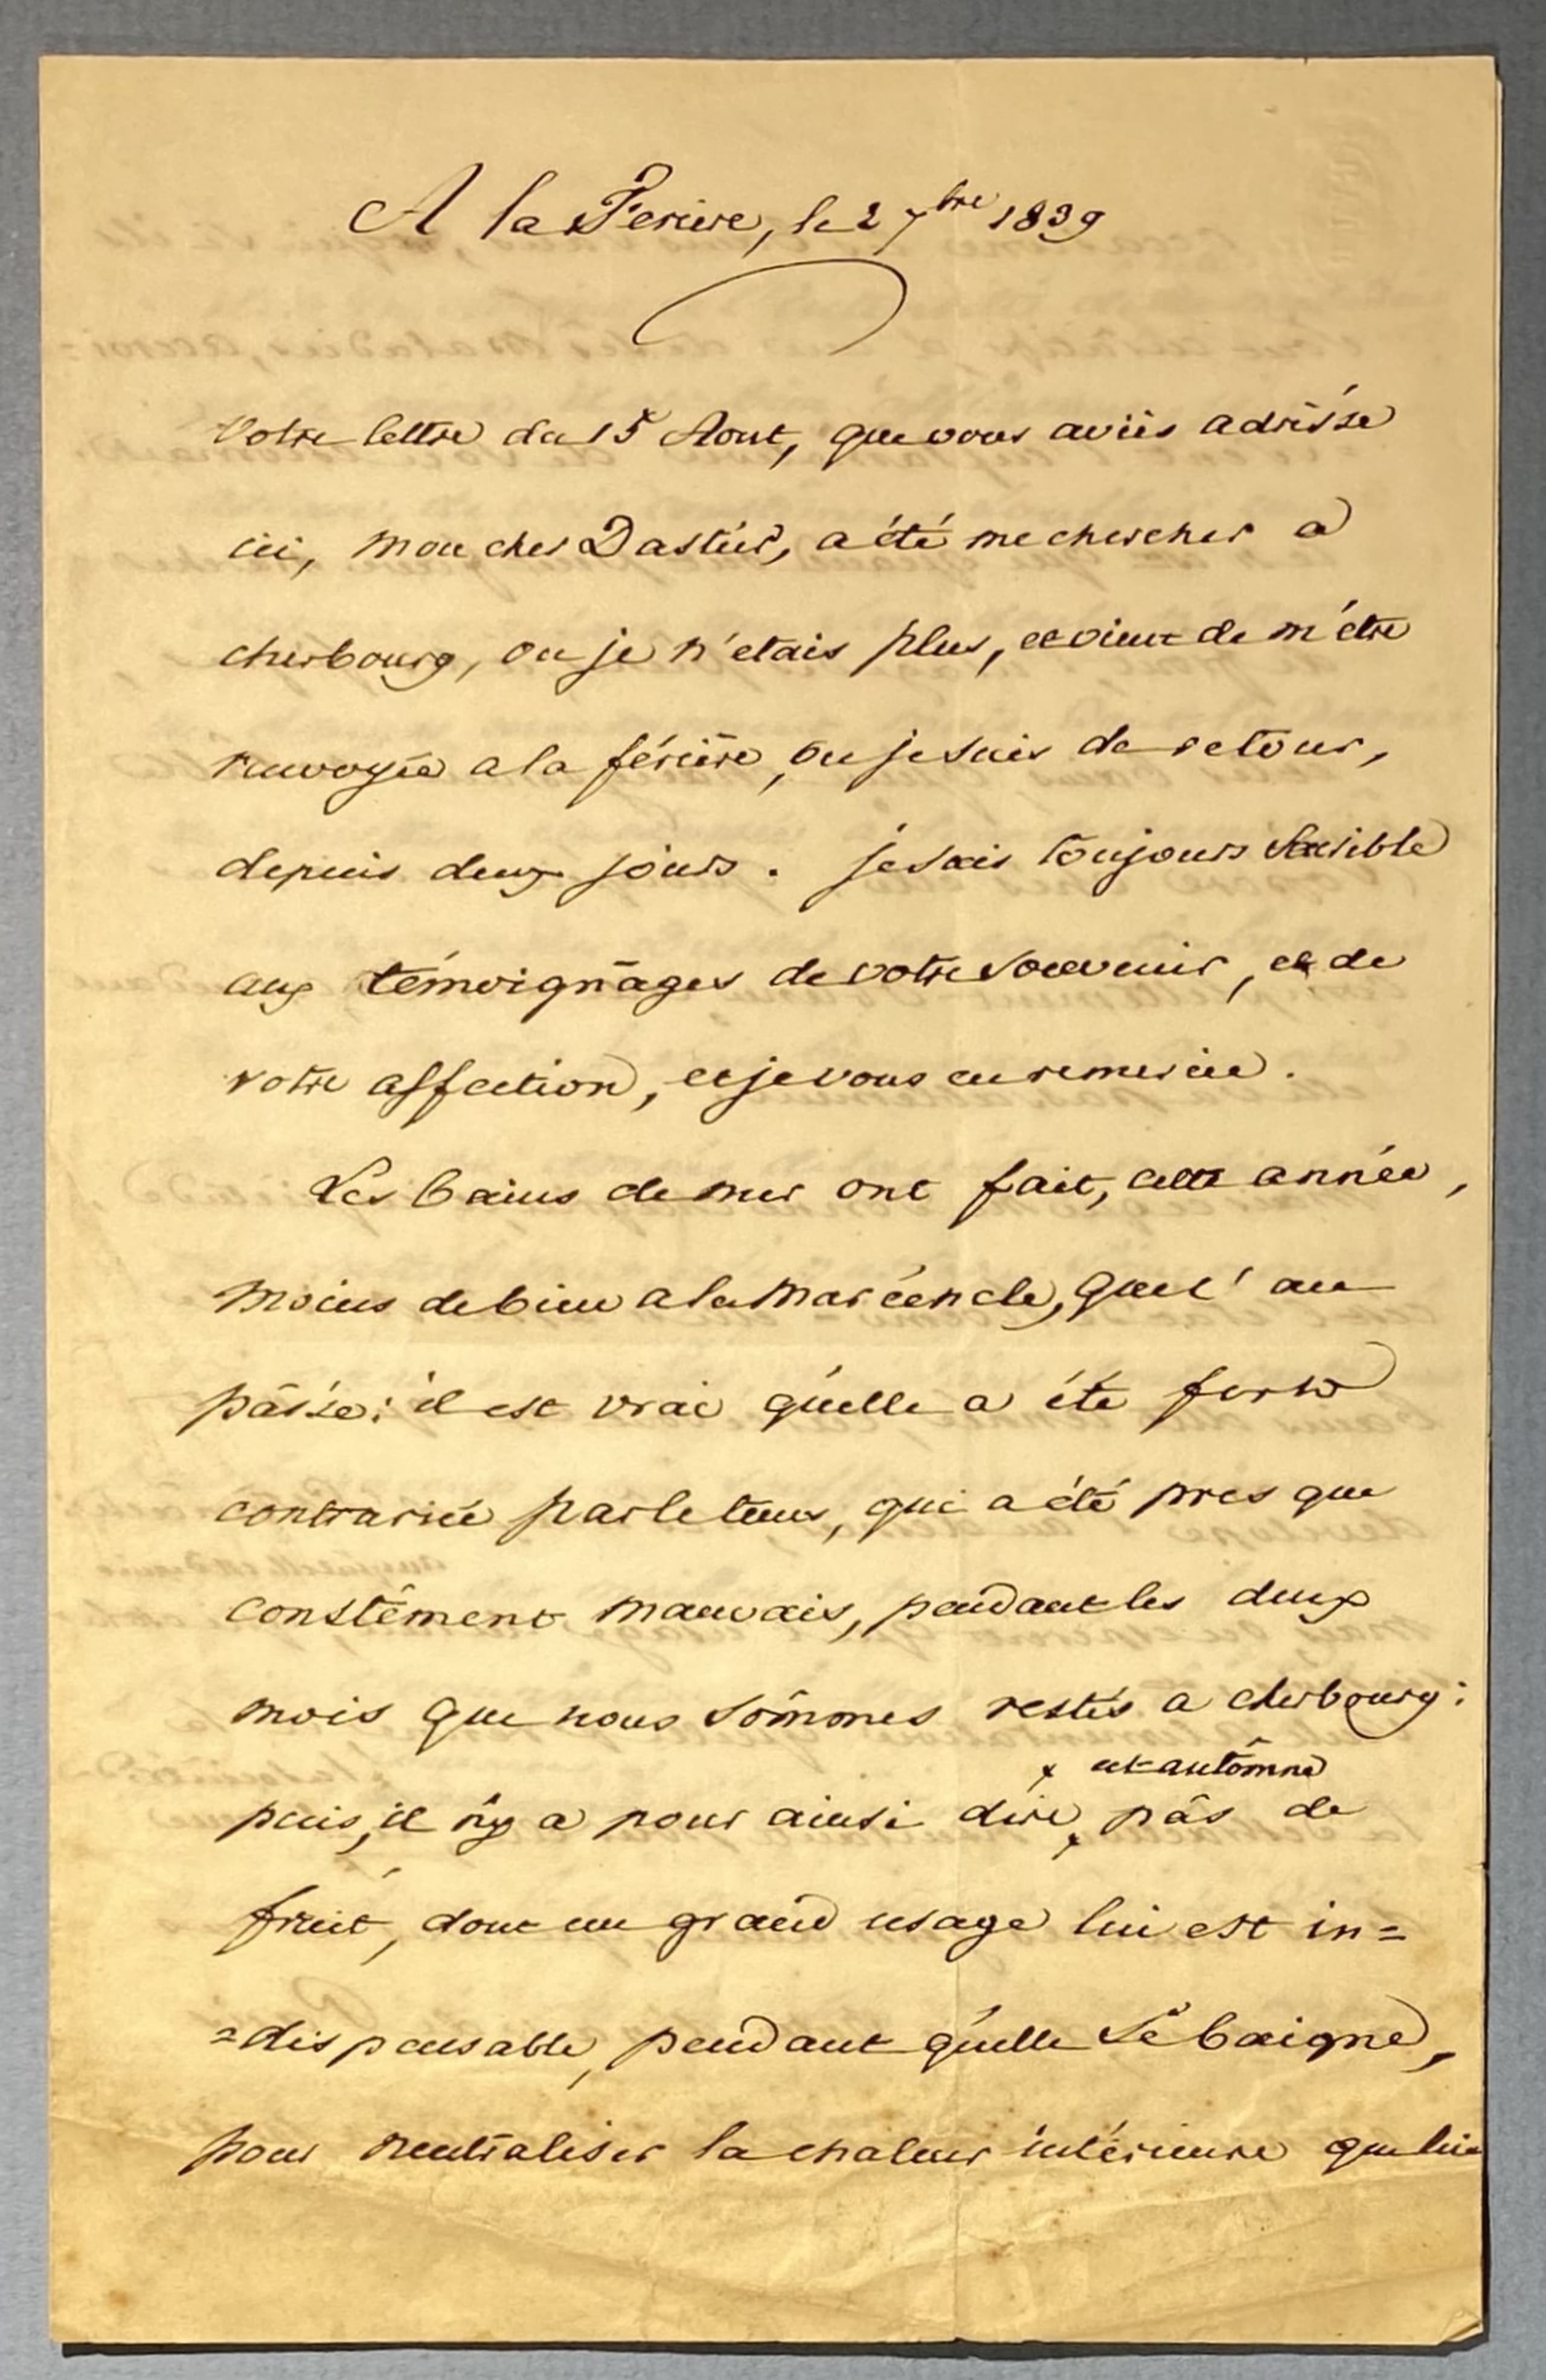 A la Feriere, le 2 7bre 1839
Votre lettre du 15 Aout, que vous aviés adréssé
ici, mon cher Dastier, a été me chercher a
cherbourg, ou je n'etais plus, et vient de m'étre
renvoyée a la fériere, ou je suis de retour,
depuis deux jours. je suis toujours Sensible
aux témoignages de votre souvenir, et de
votre affection, et je vous en remercie.
Les bains de mer ont fait, cette année,
moins de bien a la maréchale, que l'an
passé: il est vrai quelle a été fort
contrariée par le tems, qui a été pres que
constement mauvais, pendant les deux
mois que nous sommes restés a cherbourg:
x cet automne
puis, il n'y a pour ainsi dire x pas de
fruit, dont un grand usage lui est in=
=dispensable, pendant quelle se baigne,
pour neutraliser la chaleur intérieure que lui